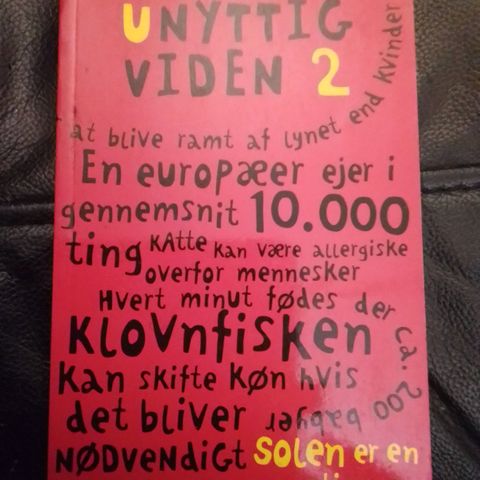 UNYTTIG
VIDEN 2
at blive ramt af lynet end kvinder
En europæer ejer i
gennemsnit 10.000
ting Katte kan være allergiske
overfor mennesker
Hvert minut fødes der ca. 200 babyer
Klovnfisken
kan skifte køn hvis
det bliver
nødvendigt solen er en